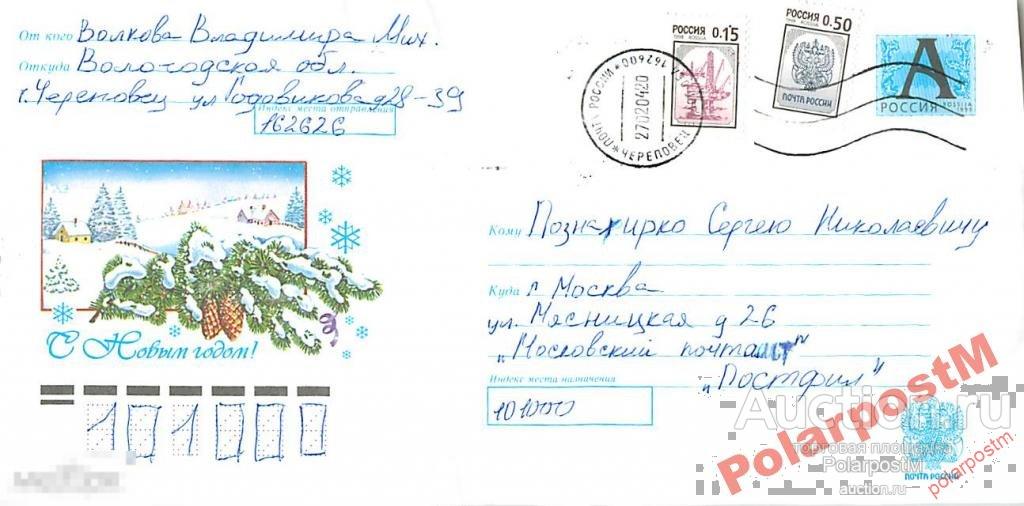 От кого Волкова Владимира Мих.
Откуда Вологодская обл.
г. Череповец ул Годовикова д28-39
Индекс места отправления
162626
РОССИЯ 0.15
1998 ROSSIA
РОССИЯ 0.50
1998 ROSSIA
ПОЧТА РОССИИ
А
РОССИЯ ROSSIA
ПОЧТА РОССИИ * 162600
27020420
* ЧЕРЕПОВЕЦ
С Новым годом!
Кому Познахирко Сергею Николаевичу
Куда г. Москва
ул. Мясницкая д 26
„Московский почтамт"
„Постфил"
Индекс места назначения
101000
101000
ПОЧТА РОССИИ
Auction.ru
торговая площадка
PolarpostM
auction.ru
PolarpostM
polarpostm